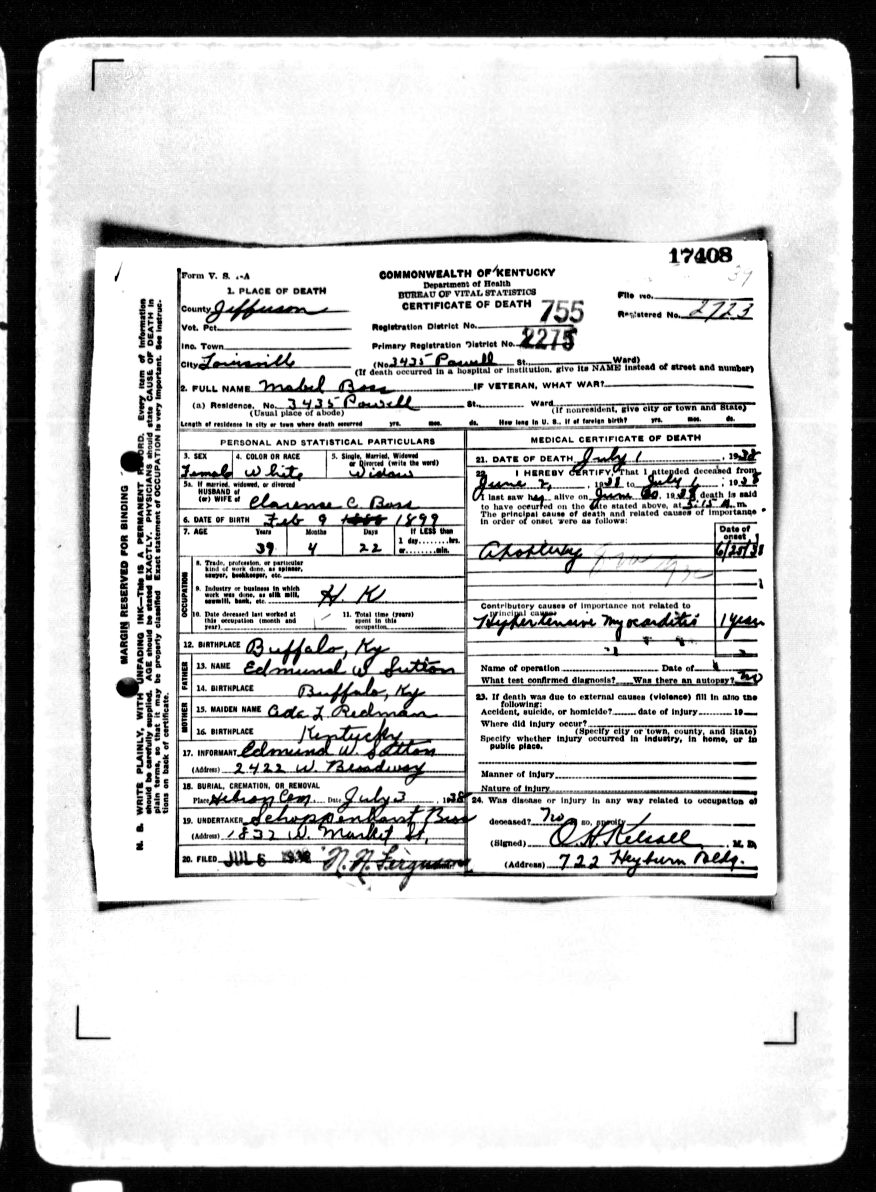 17408
37
Form V. S. 1-A
COMMONWEALTH OF KENTUCKY
Department of Health
BUREAU OF VITAL STATISTICS
CERTIFICATE OF DEATH
1. PLACE OF DEATH
County Jefferson
Vot. Pct.
Inc. Town
City Louisville
File No.
Registered No. 2723
Registration District No. 755
Primary Registration District No. 2275
(No. 3435 Powell St. Ward)
(If death occurred in a hospital or institution, give its NAME instead of street and number)
2. FULL NAME Mabel Bass IF VETERAN, WHAT WAR?
(a) Residence. No. 3435 Powell St. Ward
(Usual place of abode) (If nonresident, give city or town and State)
Length of residence in city or town where death occurred yrs. mos. ds. How long in U. S., if of foreign birth? yrs. mos. ds.
PERSONAL AND STATISTICAL PARTICULARS
3. SEX 4. COLOR OR RACE 5. Single, Married, Widowed
or Divorced (write the word)
Female White Widow
5a. If married, widowed, or divorced
HUSBAND of
(or) WIFE of Clarense C. Bass
6. DATE OF BIRTH Feb 9 1899
7. AGE Years Months Days If LESS than
1 day........hrs.
39 4 22 or........min.
OCCUPATION
8. Trade, profession, or particular
kind of work done, as spinner,
sawyer, bookkeeper, etc.
9. Industry or business in which
work was done, as silk mill,
sawmill, bank, etc. H K
10. Date deceased last worked at
this occupation (month and
year)
11. Total time (years)
spent in this
occupation
12. BIRTHPLACE Buffalo, Ky
FATHER
13. NAME Edmund W Sutton
14. BIRTHPLACE Buffalo, Ky
MOTHER
15. MAIDEN NAME Ada L Redman
16. BIRTHPLACE Kentucky
17. INFORMANT Edmund W. Sutton
(Address) 2422 W. Broadway
18. BURIAL, CREMATION, OR REMOVAL
Place Hebron Cem Date July 3, 1938
19. UNDERTAKER Schoppenhorst Bros
(Address) 1832 W. Market St,
20. FILED JUL 6 1938 N. N. Ferguson
MEDICAL CERTIFICATE OF DEATH
21. DATE OF DEATH July 1, 1938
22. I HEREBY CERTIFY, That I attended deceased from
June 2, 1938 to July 1, 1938
I last saw her alive on June 30, 1938 death is said
to have occurred on the date stated above, at 5:15 A. m.
The principal cause of death and related causes of importance
in order of onset were as follows:
Date of
onset
Apoplexy 6/25/38
Contributory causes of importance not related to
principal cause:
Hypertensive Myocarditis 1 year
Name of operation Date of
What test confirmed diagnosis? Was there an autopsy? No
23. If death was due to external causes (violence) fill in also the
following:
Accident, suicide, or homicide? date of injury 19
Where did injury occur?
(Specify city or town, county, and State)
Specify whether injury occurred in industry, in home, or in
public place.
Manner of injury
Nature of injury
24. Was disease or injury in any way related to occupation of
deceased? No so, specify
(Signed) O. H. Kelsall M. D.
(Address) 722 Heyburn Bldg.
MARGIN RESERVED FOR BINDING
N. B. WRITE PLAINLY, WITH UNFADING INK—This IS A PERMANENT RECORD. Every item of information
should be carefully supplied. AGE should be stated EXACTLY. PHYSICIANS should state CAUSE OF DEATH in
plain terms, so that it may be properly classified. Exact statement of OCCUPATION is very important. See instruc-
tions on back of certificate.